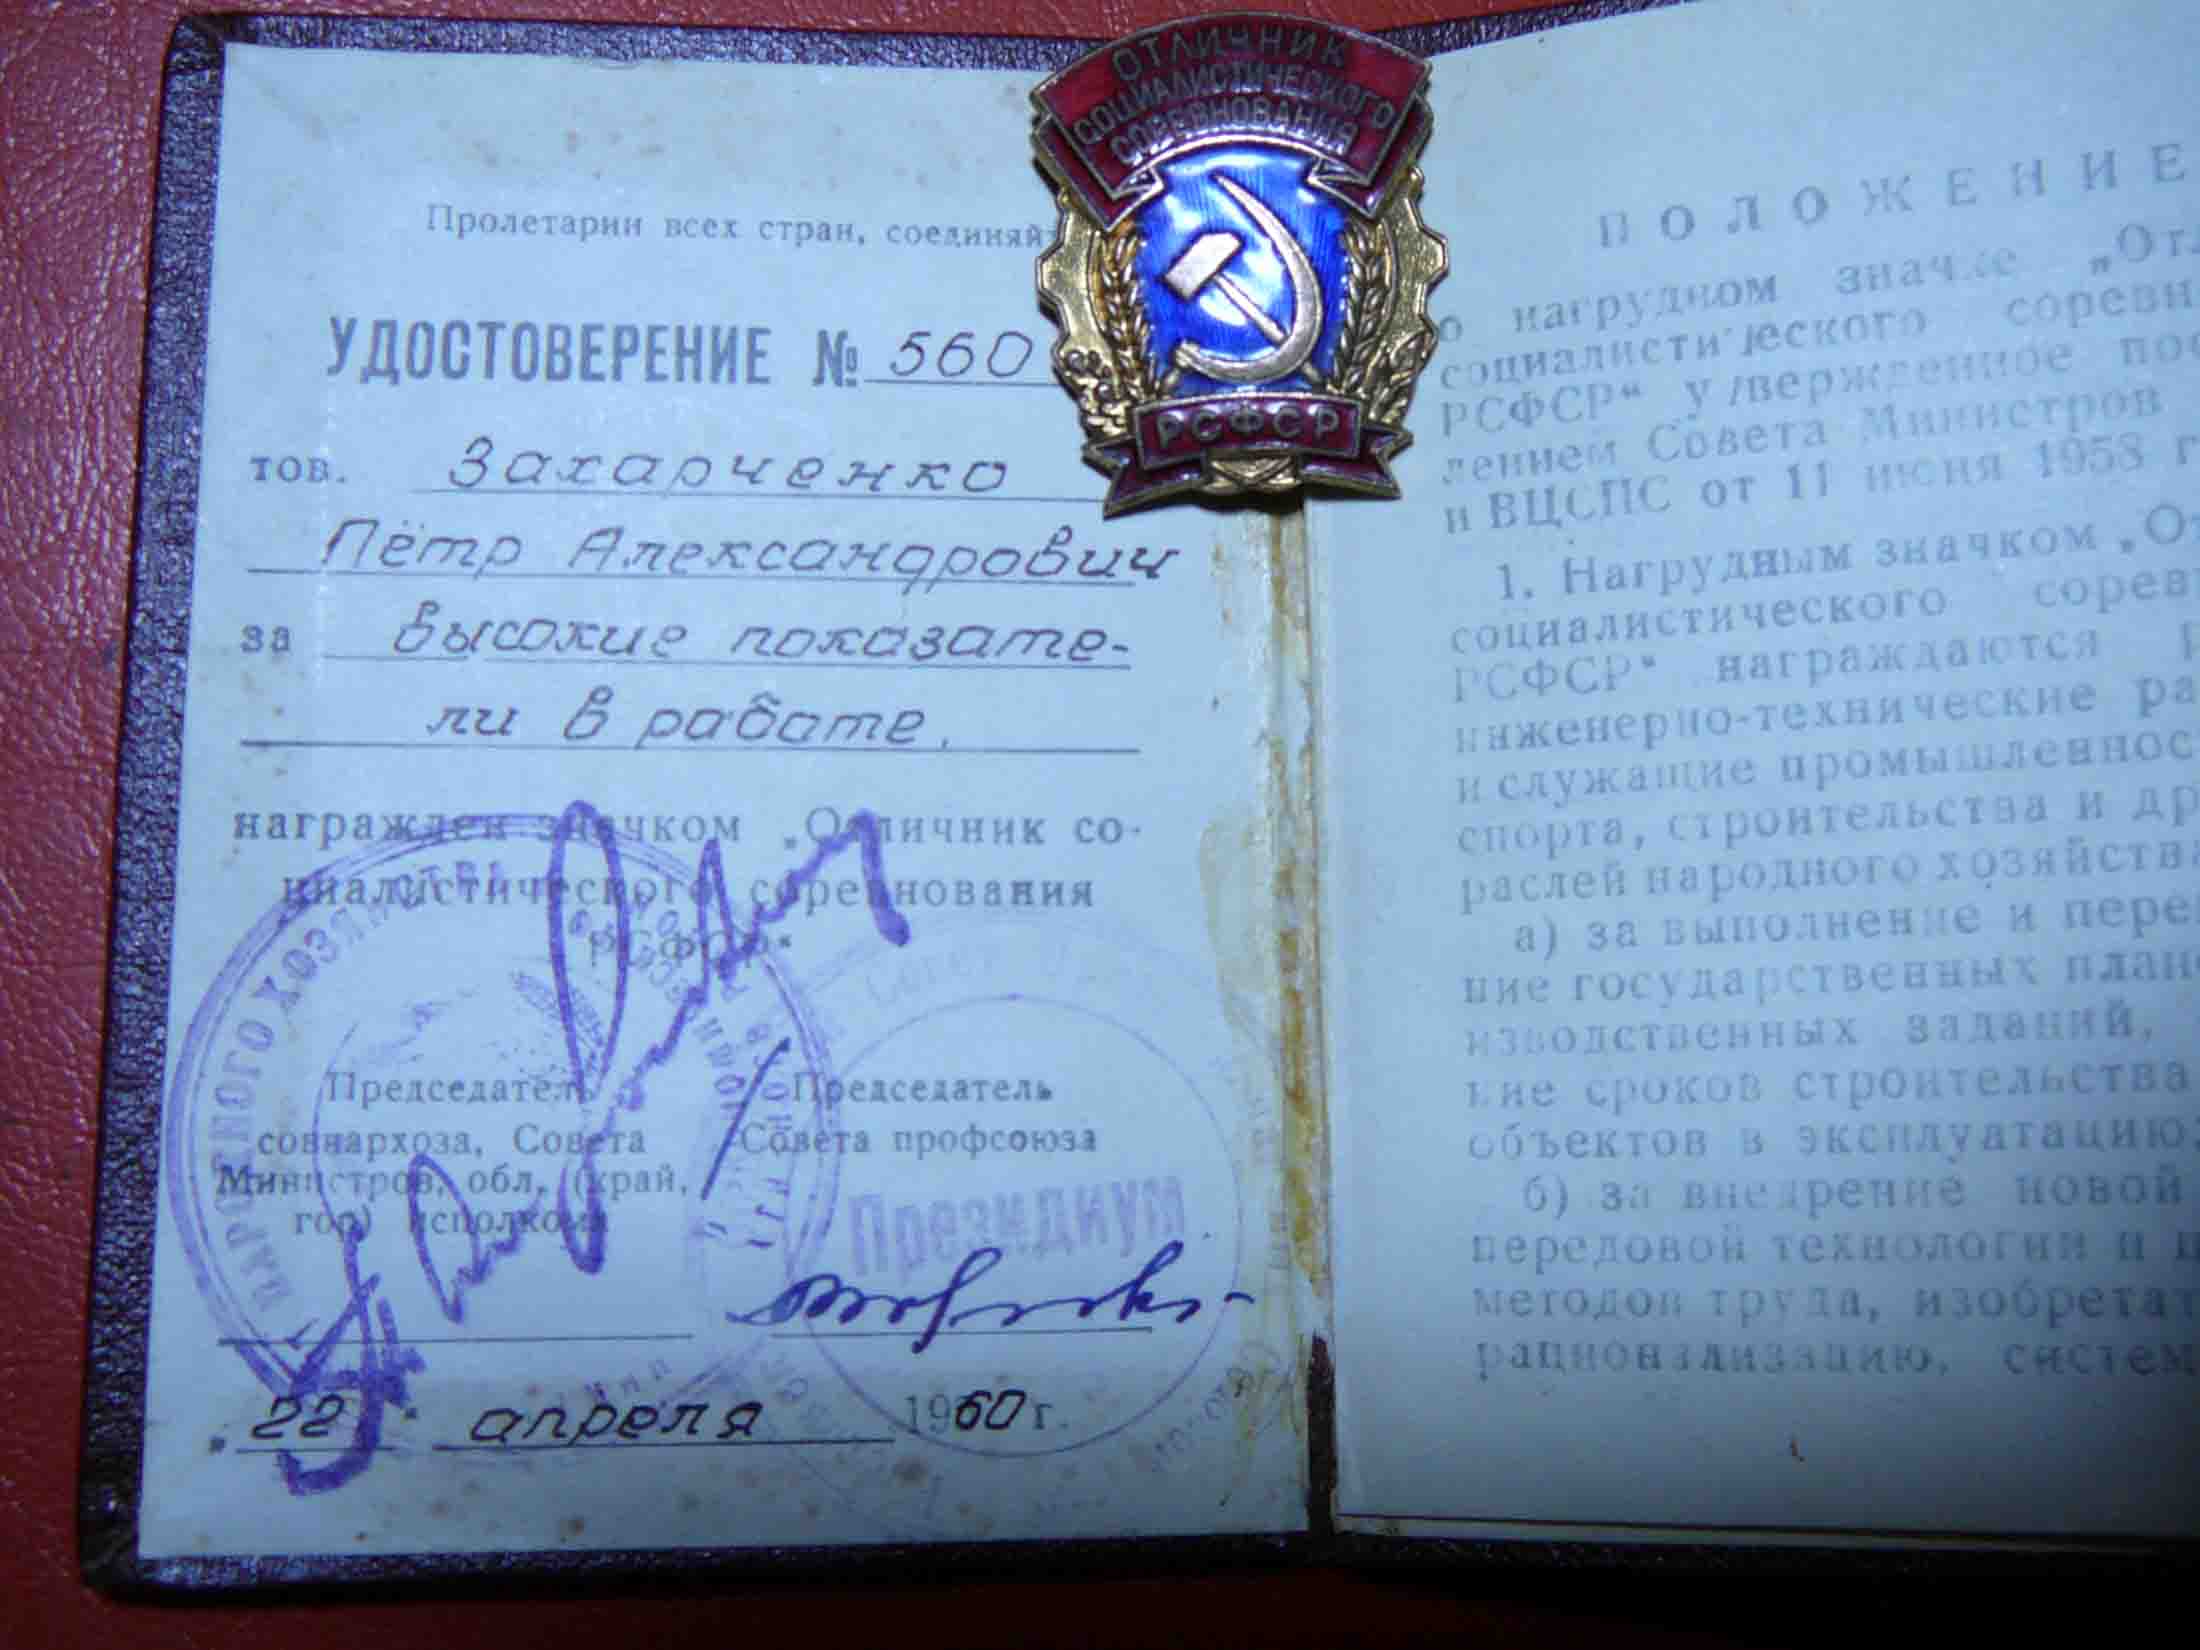 ОТЛИЧНИК
СОЦИАЛИСТИЧЕСКОГО
СОРЕВНОВАНИЯ
РСФСР
Пролетарии всех стран, соединяй
УДОСТОВЕРЕНИЕ № 560
тов. Захарченко
Пётр Александрович
за высокие показате-
ли в работе.
награжден значком „Отличник со-
циалистического соревнования
РСФСР“
Председатель
совнархоза, Совета
Министров, обл. (край,
гор) исполкома
Председатель
Совета профсоюза
НАРОДНОГО ХОЗЯЙСТВА
Президиум
„22“ апреля 1960 г.
ПОЛОЖЕНИЕ
о нагрудном значке „Отл
социалистического соревн
РСФСР“ утвержденное пос
лением Совета Министров
и ВЦСПС от 11 июня 1958 г
1. Нагрудным значком „От
социалистического соревн
РСФСР“ награждаются
инженерно-технические ра
и служащие промышленнос
спорта, строительства и др
раслей народного хозяйства
а) за выполнение и пере
ние государственных план
изводственных заданий,
кие сроков строительства
объектов в эксплуатацию;
б) за внедрение новой
передовой технологии и ц
методов труда, изобретат
рационализацию, систем